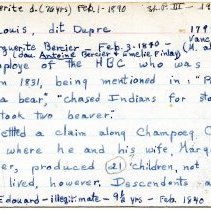 erite d. (74 yrs) Feb. 1-1890
Louis, dit Dupre 179
Vanc
guerite Bercier - Feb. 3-1840 - (M. al
(dau. Antoine Bercier & Emelie Finlay)
ploye of the HBC who was
n 1831, being mentioned in: "P
a bear," "chased Indians for ste
took two beaver."
ettled a claim along Champoeg C
where he and his wife, Margu
er, produced 21 children, not
lived, however. Descendents a
Edouard - illegitimate - 9½ yrs - Feb. 1840